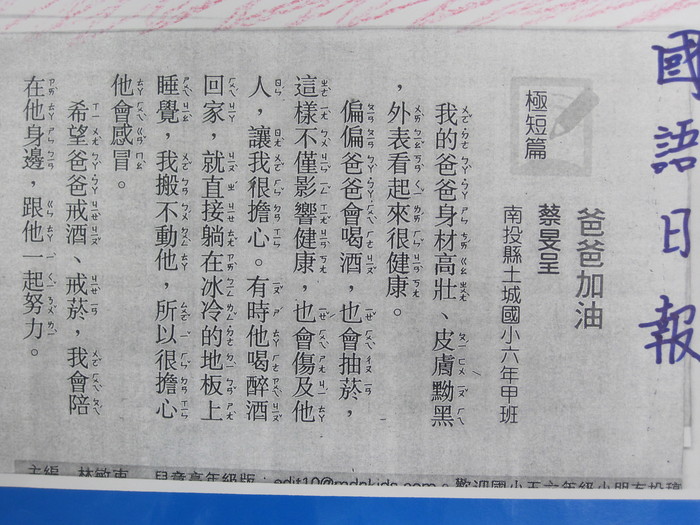 國語日報
爸爸加油
蔡旻呈
南投縣土城國小六年甲班
極短篇
我的爸爸身材高壯、皮膚黝黑
，外表看起來很健康。
偏偏爸爸會喝酒，也會抽菸，
這樣不僅影響健康，也會傷及他
人，讓我很擔心。有時他喝醉酒
回家，就直接躺在冰冷的地板上
睡覺，我搬不動他，所以很擔心
他會感冒。
希望爸爸戒酒、戒菸，我會陪
在他身邊，跟他一起努力。
主編 林敏東 兒童高年級版：edit10@mdnkids.com。歡迎國小五六年級小朋友投稿